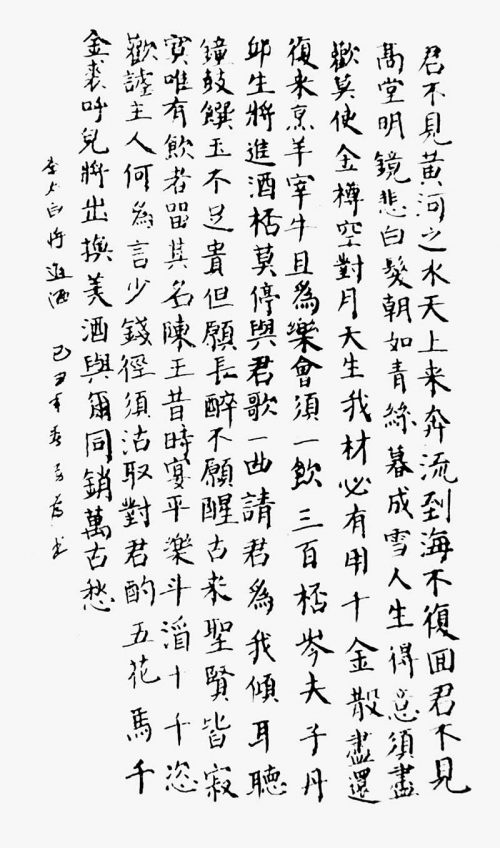 君不見黃河之水天上来奔流到海不復囬君不見
高堂明鏡悲白髮朝如青絲暮成雪人生得意須盡
歡莫使金樽空對月天生我材必有用千金散盡還
復来烹羊宰牛且為樂會須一飲三百桮岑夫子丹
邱生將進酒桮莫停與君歌一曲請君為我傾耳聽
鐘鼓饌玉不足貴但願長醉不願醒古来聖賢皆寂
寞唯有飲者留其名陳王昔時宴平樂斗酒十千恣
歡謔主人何為言少錢徑須沽取對君酌五花馬千
金裘呼兒將出換美酒與爾同銷萬古愁
李太白將進酒 己丑年春 書